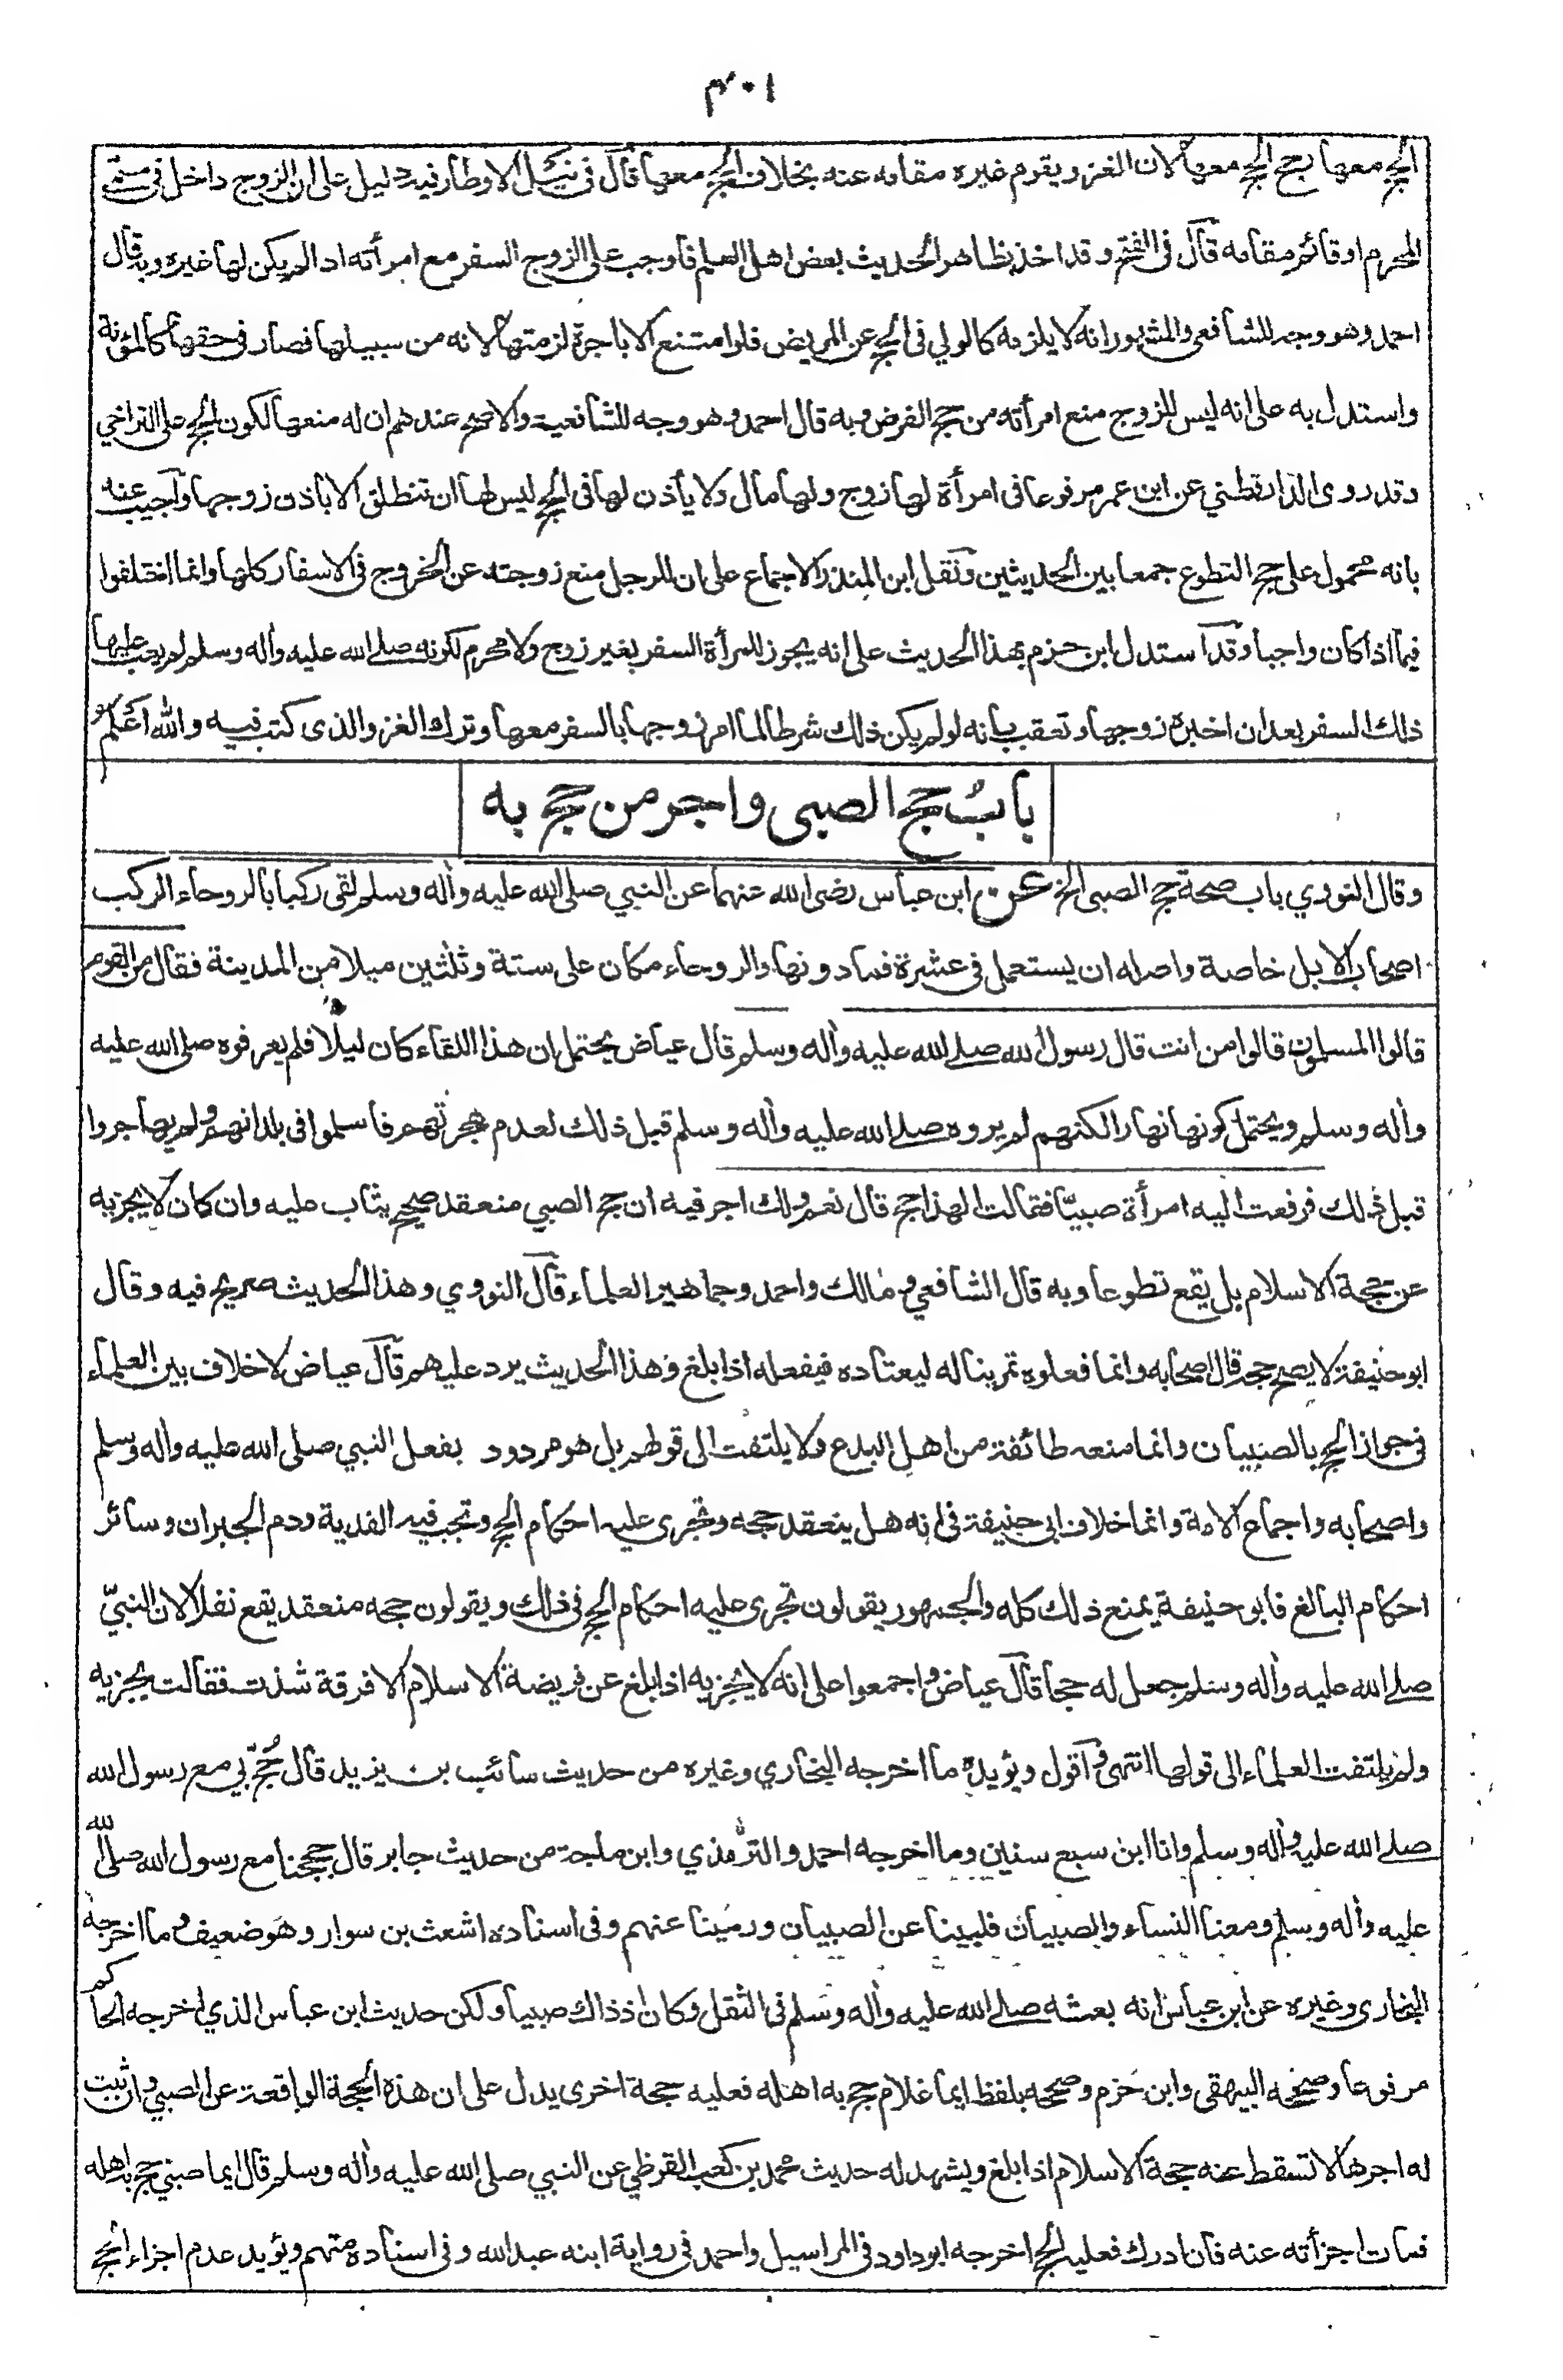 ٣٠١
الحج معها رجح الحج معها لان الغزو يقوم غيره مقامه عنه بخلاف الحج معها قال فى نيل الاوطار فيه دليل على ان الزوج داخل فى مسمى
المحرم او قائم مقامه قال فى الفتح وقد اخذ بظاهر الحديث بعض اهل العلم فاوجب على الزوج السفر مع امرأته اذا لم يكن لها غيره وبه قال
احمد وهو وجه للشافعى والمشهور انه لا يلزمه كالولي فى الحج عن المريض فلو امتنع الا باجرة لزمتها لانه من سبيلها فصار فى حقها كالمؤنة
واستدل به على انه ليس للزوج منع امرأته من حج الفرض وبه قال احمد وهو وجه للشافعية والاصح عندهم ان له منعها لكون الحج على التراخي
وقد روى الدارقطني عن ابن عمر مرفوعا فى امرأة لها زوج ولها مال ولا يأذن لها فى الحج ليس لها ان تنطلق الا باذن زوجها وأجيب عنه
بانه محمول على حج التطوع جمعا بين الحديثين ونقل ابن المنذر الاجماع على ان للرجل منع زوجته عن الخروج فى الاسفار كلها وانما اختلفوا
فيما اذا كان واجبا وقد استدل ابن حزم بهذا الحديث على انه يجوز للمرأة السفر بغير زوج ولا محرم لكونه صلى الله عليه وأله وسلم لم يعب عليها
ذلك السفر بعد ان اخبره زوجها وتعقب بانه لو لم يكن ذلك شرطا لما امر زوجها بالسفر معها وترك الغزو الذى كتب فيه والله اعلم
بابُ حج الصبى واجر من حج به
وقال النووي باب صحة حج الصبى الخ عن ابن عباس رضى الله عنهما عن النبي صلى الله عليه وأله وسلم لقى ركبا بالروحاء الركب
اصحاب الابل خاصة واصله ان يستعمل فى عشرة فما دونها والروحاء مكان على ستة وثلثين ميلا من المدينة فقال من القوم
قالوا المسلمون قالوا من انت قال رسول الله صلى الله عليه وأله وسلم قال عياض يحتمل ان هذا اللقاء كان ليلًا فلم يعرفوه صلى الله عليه
وأله وسلم ويحتمل كونها نهارا لكنهم لم يروه صلى الله عليه وأله وسلم قبل ذلك لعدم هجرتهم فاسلموا فى بلدانهم ولم يهاجروا
قبل ذلك فرفعت اليه امرأة صبيّا فقالت الهذا حج قال نعم ولك اجر فيه ان حج الصبي منعقد صحيح يثاب عليه وان كان لا يجزيه
عن حجة الاسلام بل يقع تطوعا وبه قال الشافعي ومالك واحمد وجماهير العلماء قال النووي وهذا الحديث صريح فيه وقال
ابو حنيفة لا يصح حجه قال اصحابه وانما فعلوه تمرينا له ليعتاده فيفعله اذا بلغ وهذا الحديث يرد عليهم قال عياض لا خلاف بين العلماء
فى جواز الحج بالصبيان وانما منعه طائفة من اهل البدع ولا يلتفت الى قولهم بل هو مردود بفعل النبي صلى الله عليه وأله وسلم
واصحابه واجماع الامة وانما خلاف ابى حنيفة فى انه هل ينعقد حجه وتجرى عليه احكام الحج وتجب فيه الفدية ودم الجبران وسائر
احكام البالغ فابو حنيفة يمنع ذلك كله والجمهور يقولون تجرى عليه احكام الحج فى ذلك ويقولون حجه منعقد يقع نفلا لان النبيّ
صلى الله عليه وأله وسلم جعل له حجا قال عياض واجمعوا على انه لا يجزيه اذا بلغ عن فريضة الاسلام الا فرقة شذت فقالت يجزيه
ولم يلتفت العلماء الى قولها انتهى وأقول ويؤيده ما اخرجه البخاري وغيره من حديث سائب بن يزيد قال حُجَّ بي مع رسول الله
صلى الله عليه وأله وسلم وانا ابن سبع سنين وما اخرجه احمد والترمذي وابن ماجة من حديث جابر قال حججنا مع رسول الله صلى الله
عليه وأله وسلم ومعنا النساء والصبيان فلبينا عن الصبيان ورمينا عنهم وفى اسناده اشعث بن سوار وهو ضعيف وما اخرجه
البخارى وغيره عن ابن عباس انه بعثه صلى الله عليه وأله وسلم فى الثقل وكان اذ ذاك صبيا ولكن حديث ابن عباس الذي اخرجه الحاكم
مرفوعا وصححه البيهقى وابن حزم وصححه بلفظ ايما غلام حج به اهله فعليه حجة اخرى يدل على ان هذه الحجة الواقعة عن الصبي وان ثبت
له اجرها لا تسقط عنه حجة الاسلام اذا بلغ ويشهد له حديث محمد بن كعب القرظي عن النبي صلى الله عليه وأله وسلم قال ايما صبي حج به اهله
فمات اجزأته عنه فان ادرك فعليه الحج اخرجه ابو داود فى المراسيل واحمد فى رواية ابنه عبدالله وفى اسناده متهم ويؤيد عدم اجزاء الحج